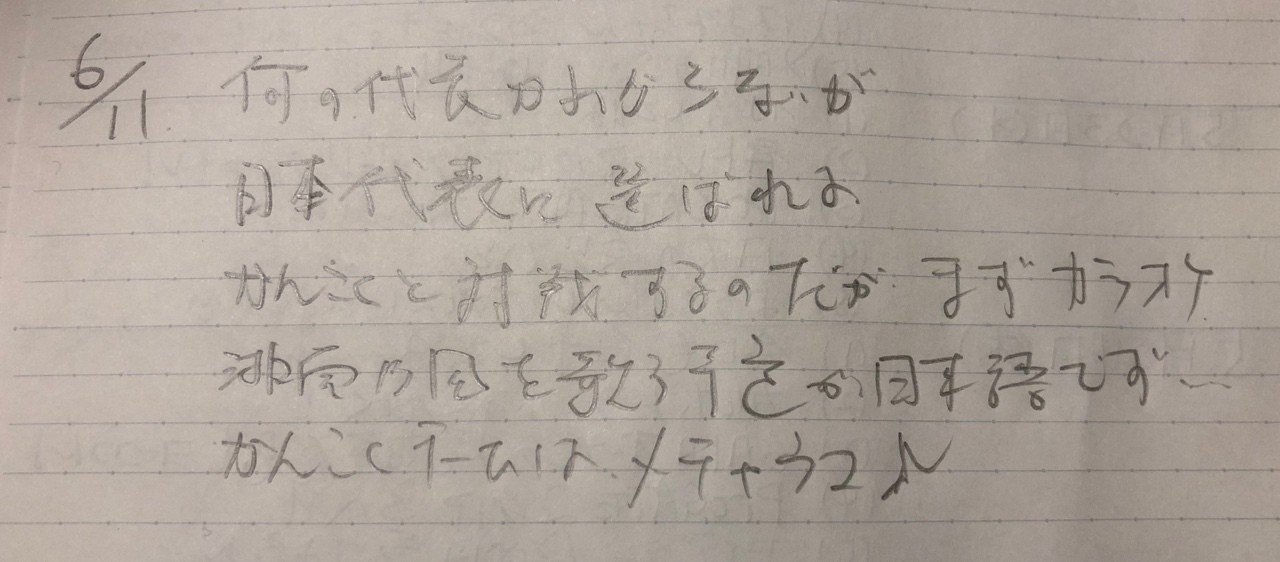 6/11 何の代表かわからないが
日本代表に選ばれ
かんこくと対戦するのだが まずカラオケ
を歌う予定が日本語でず
かんこくチームは メチャうコ